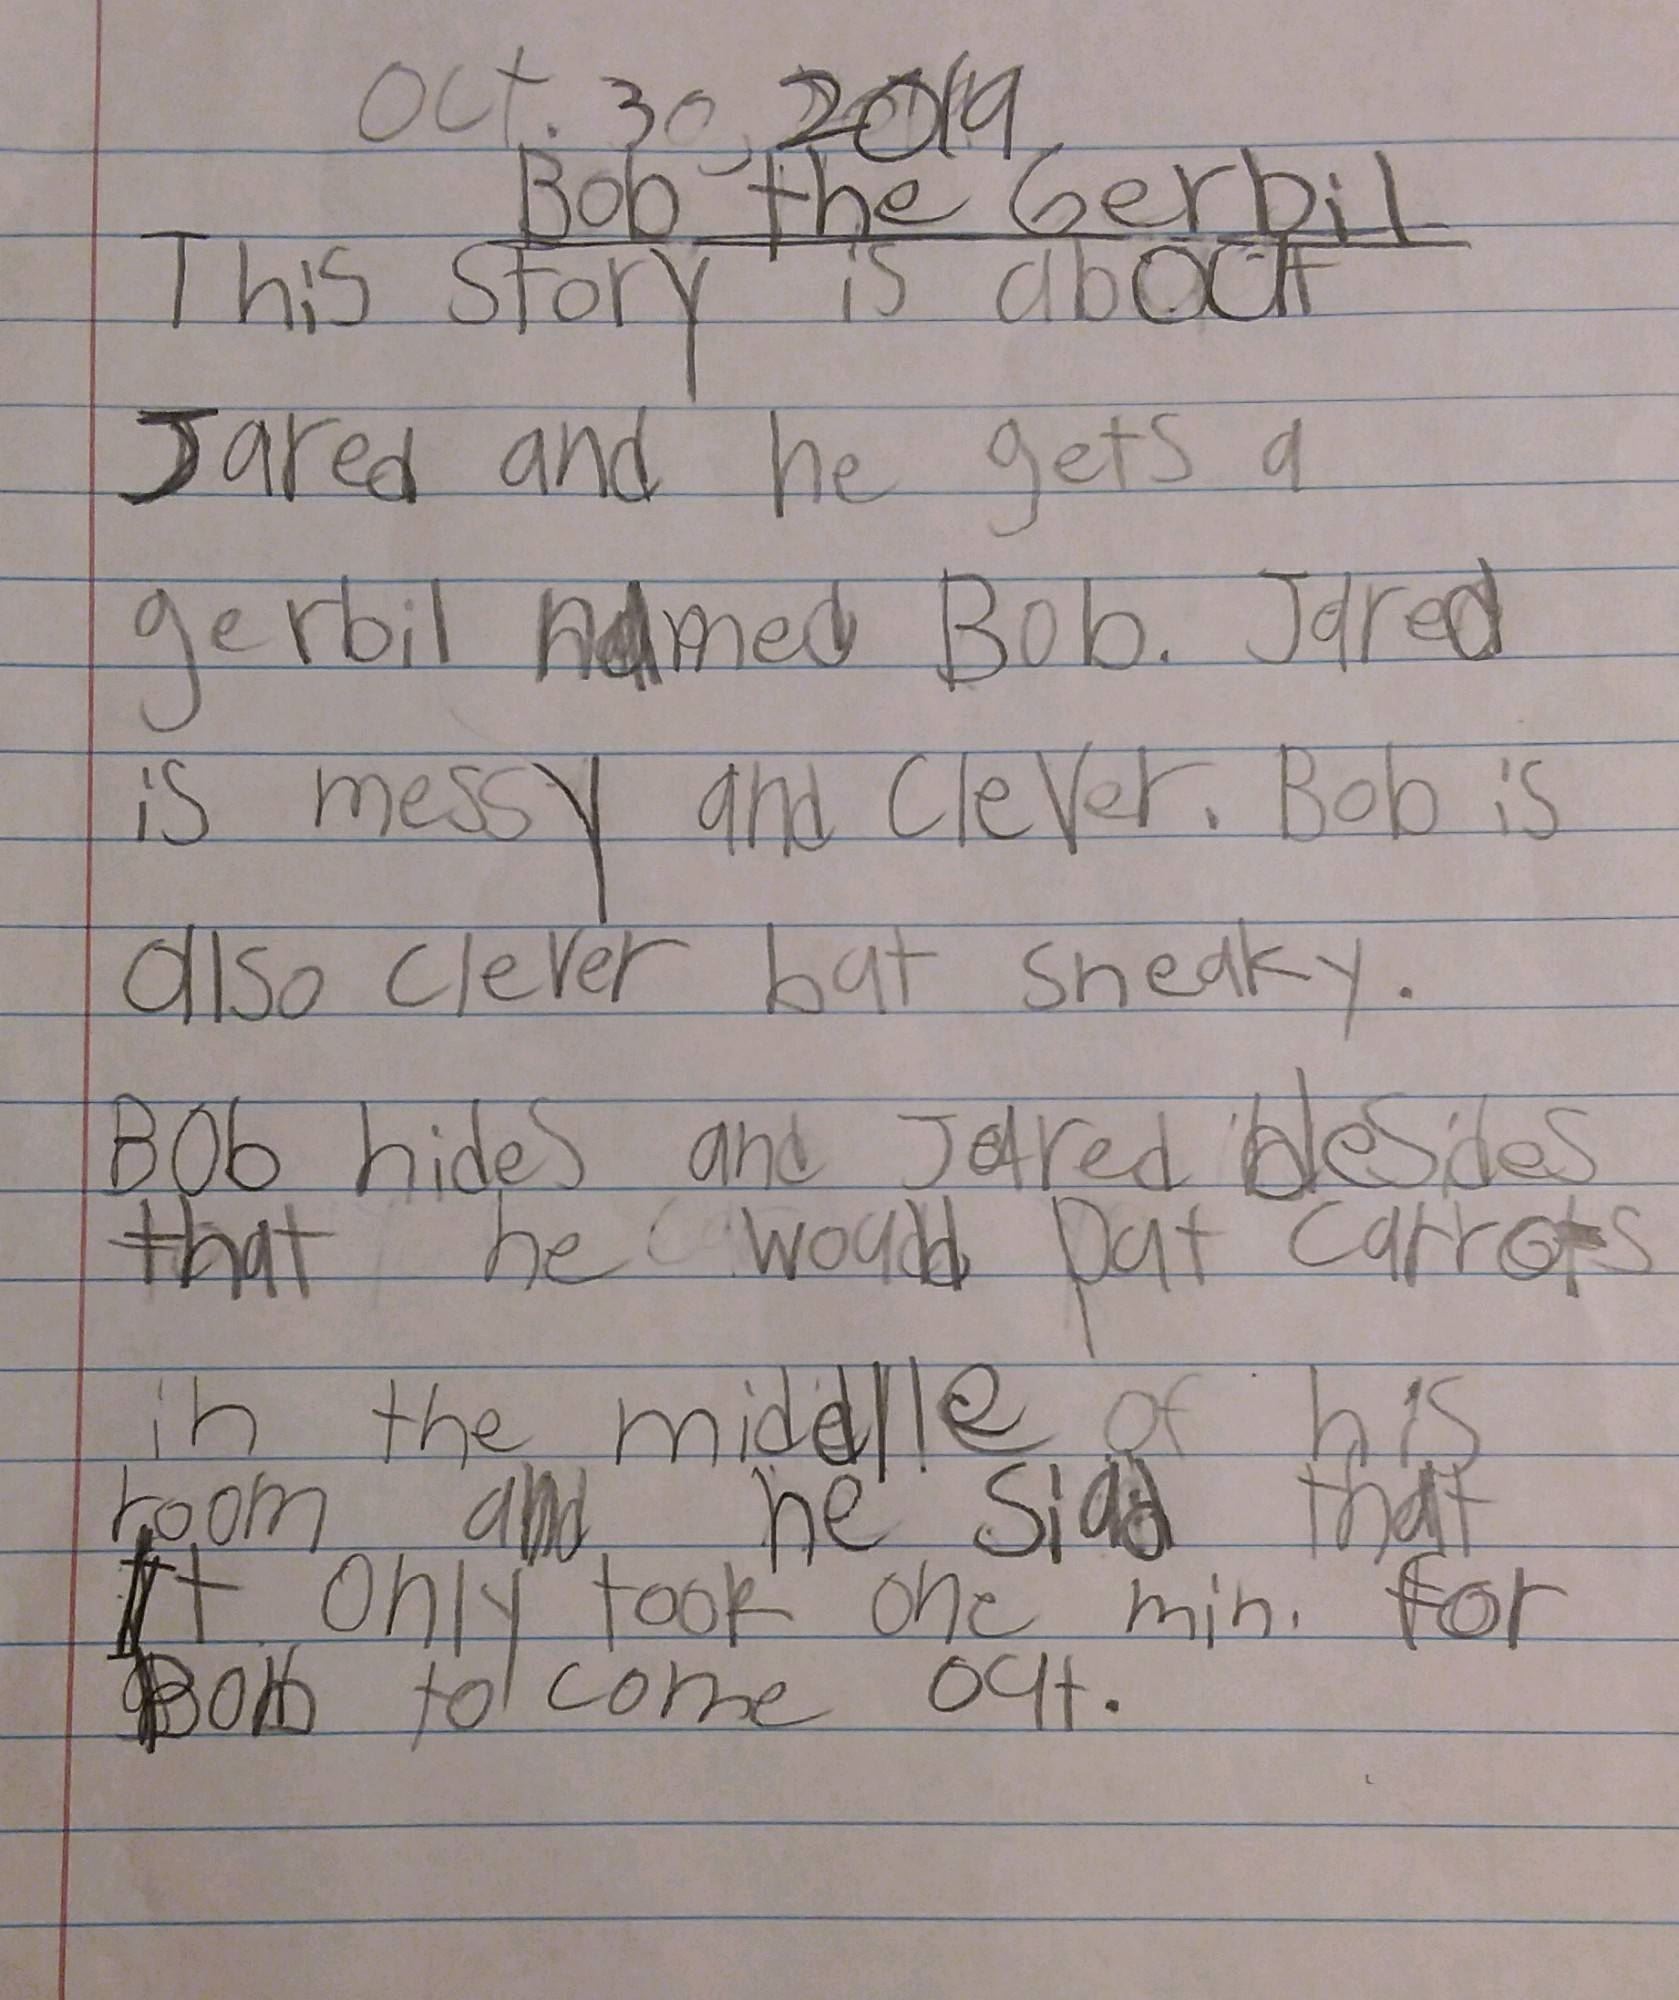 Oct. 30, 2019
Bob the Gerbil
This story is about
Jared and he gets a
gerbil named Bob. Jared
is messy and clever. Bob is
also clever but sneaky.
Bob hides and Jared desides
that he would put carrots
in the middle of his
room and he siad that
It only took one min. for
Bob to come out.